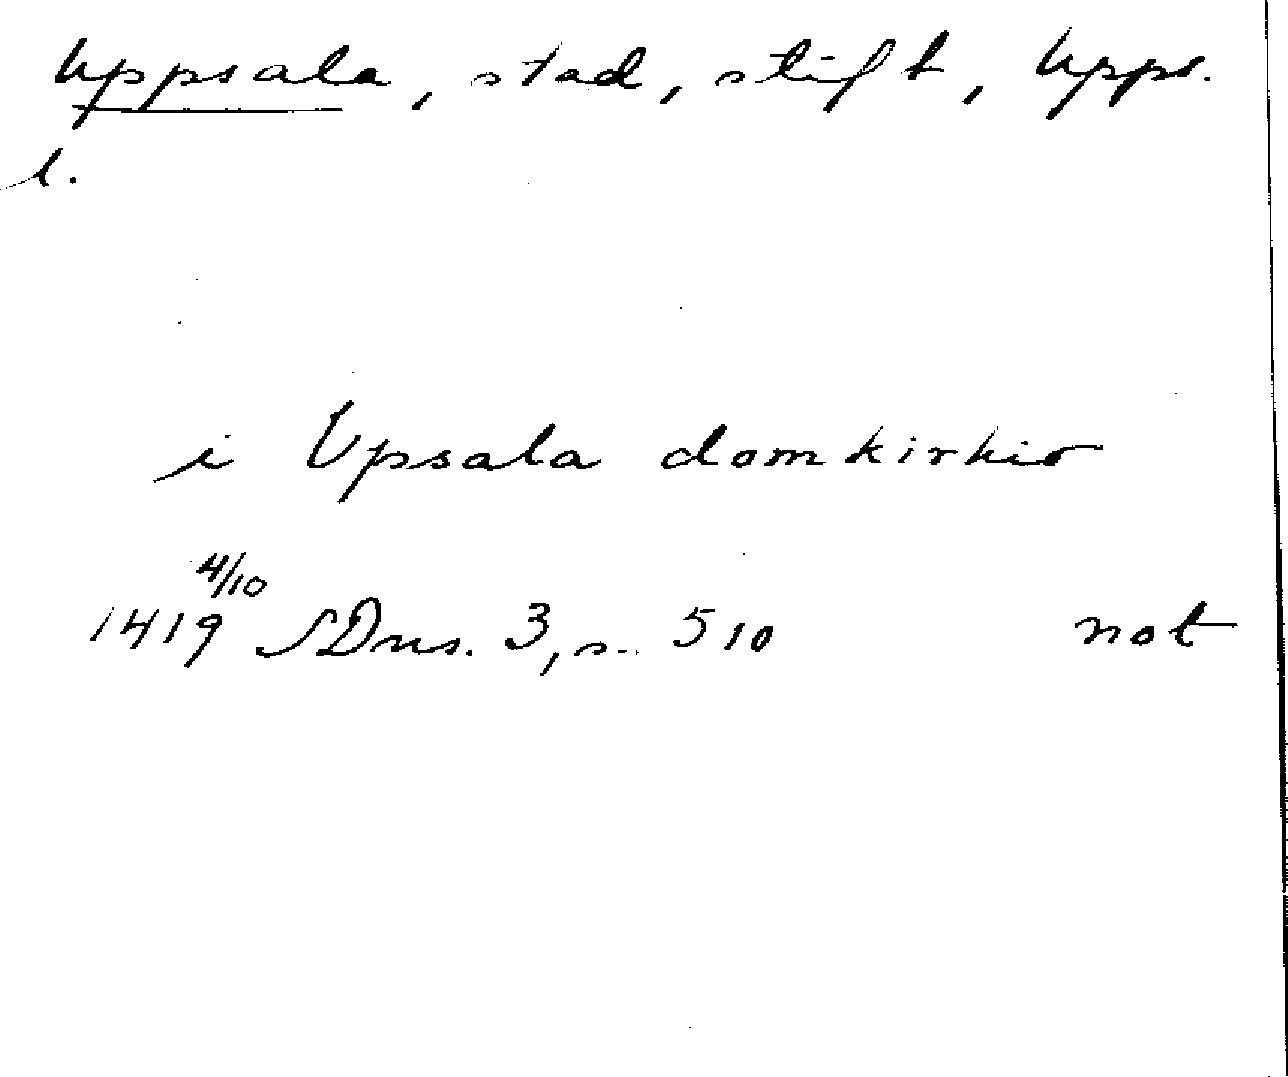 Uppsala, stad, stift, Upps.
l.
i Upsala domkirkio
1419 4/10 SDns. 3, s. 510 not